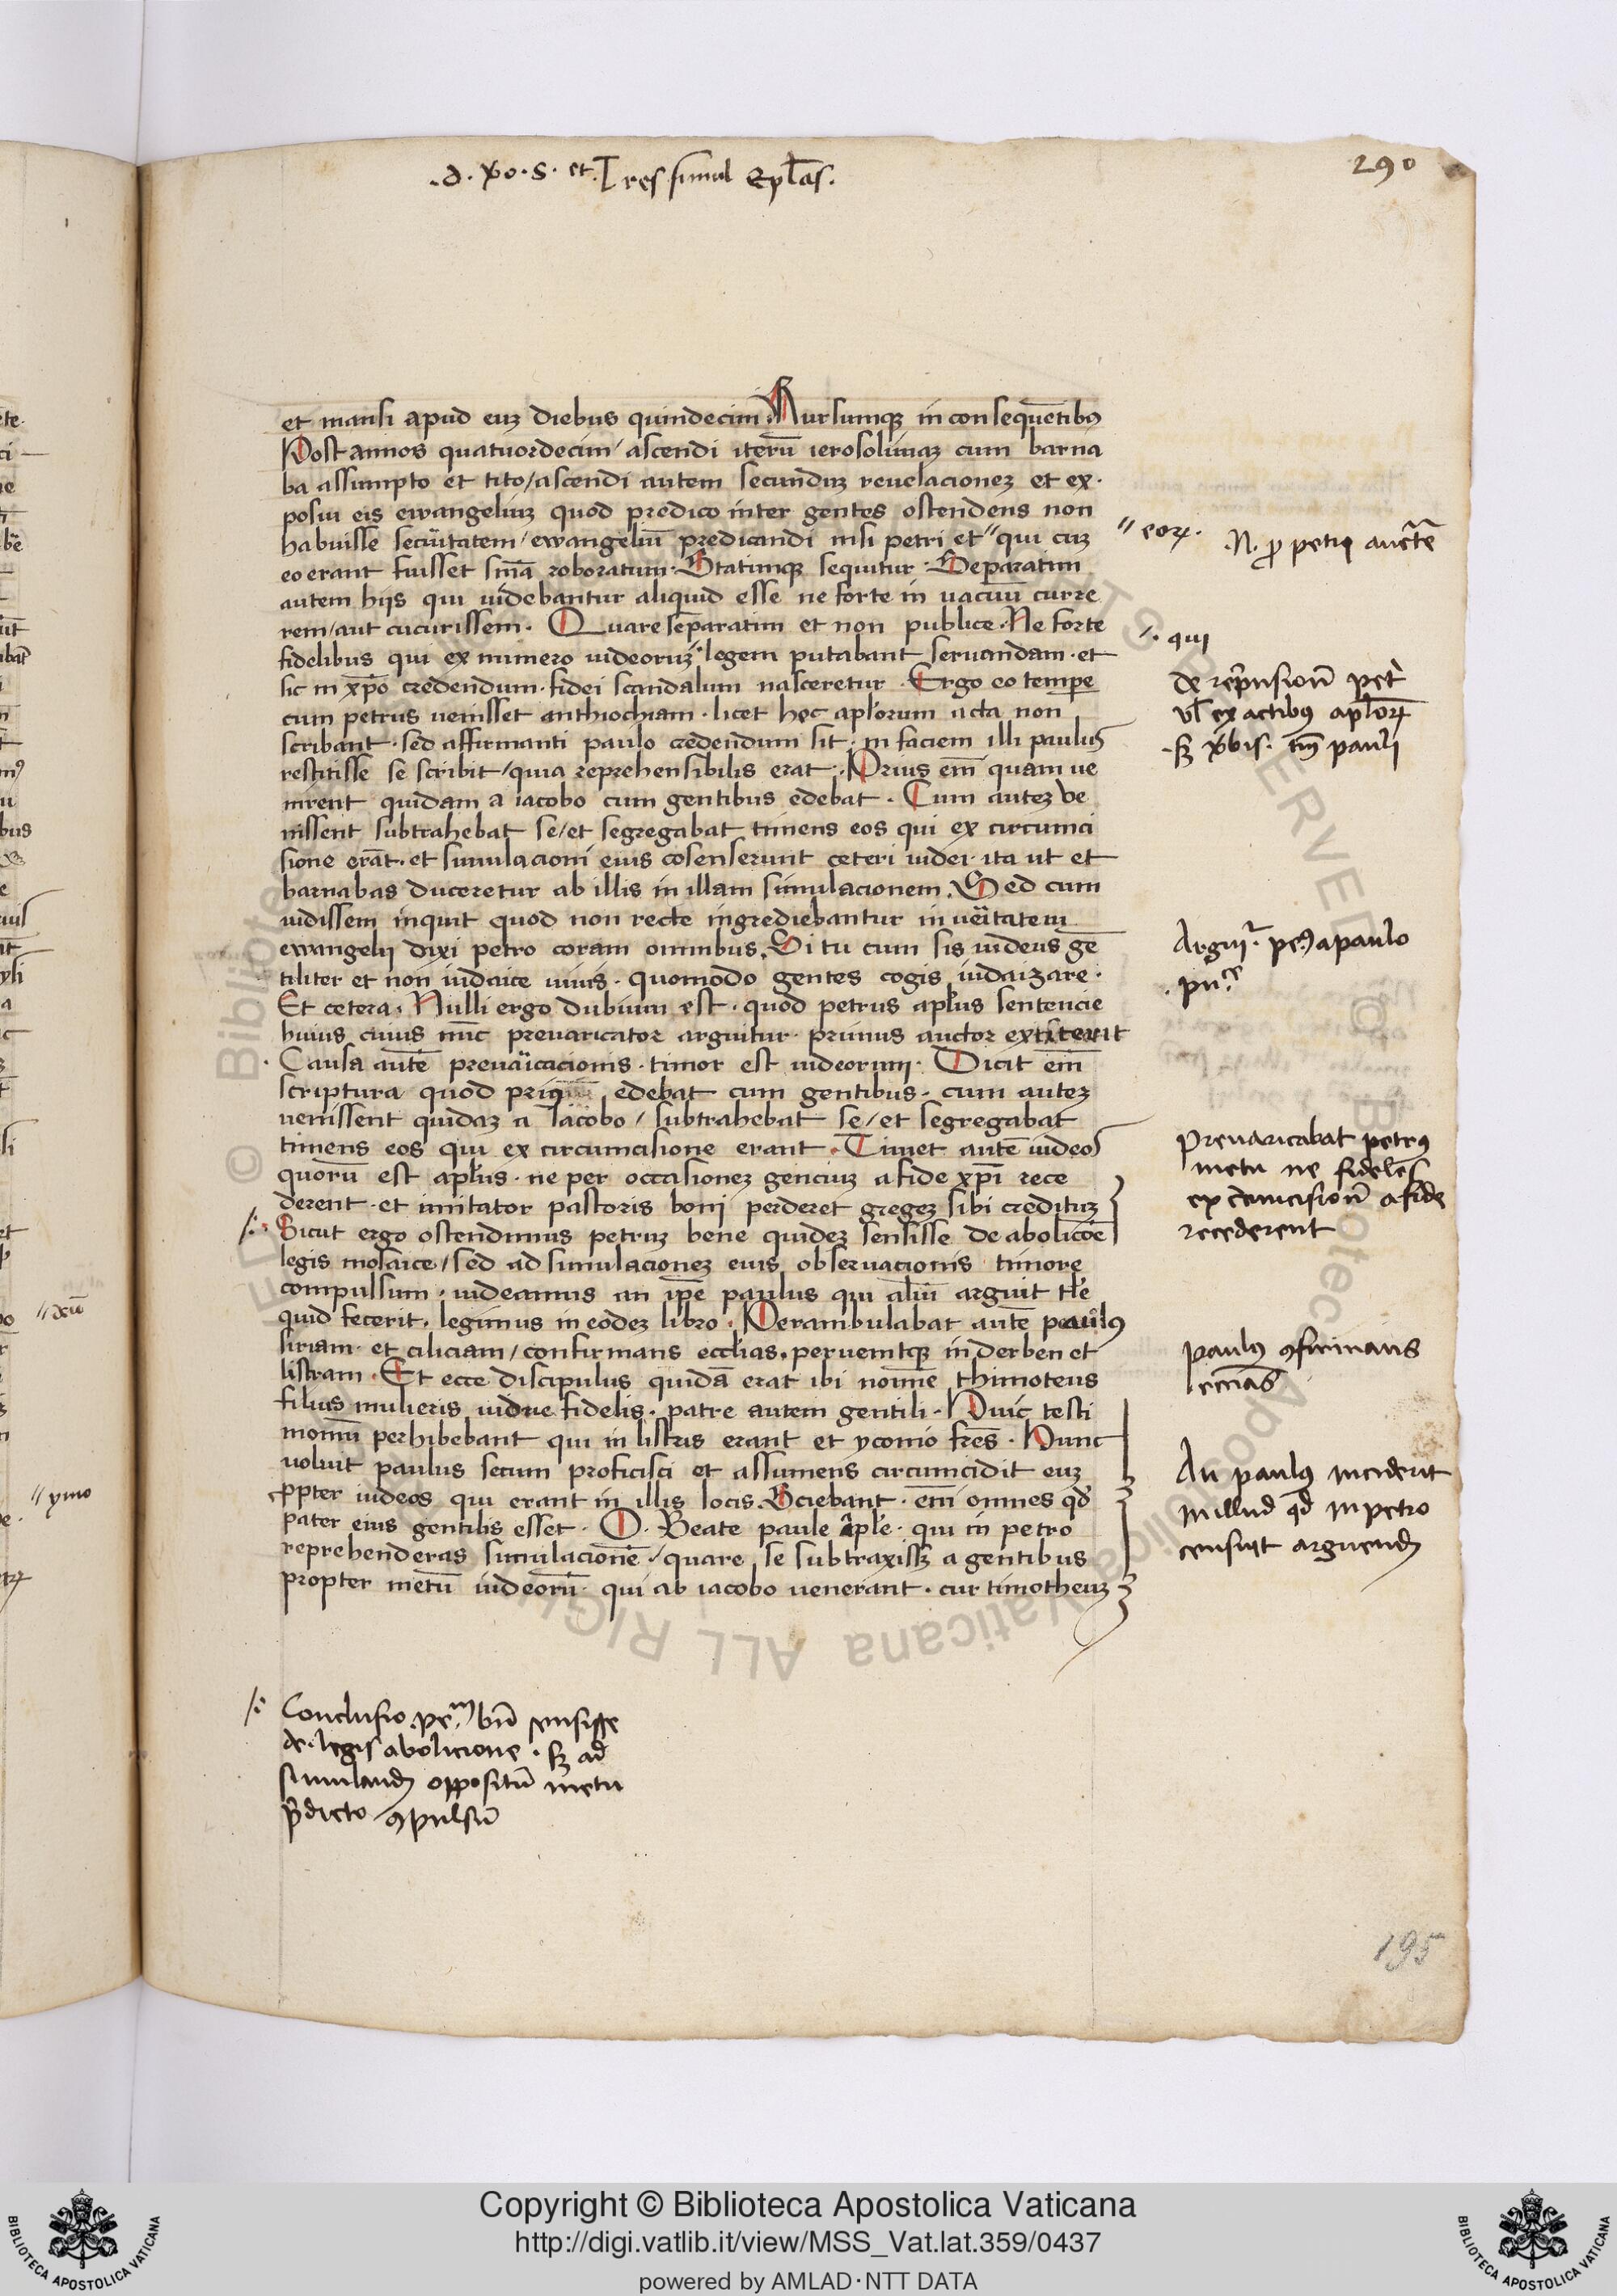 .d. xpo. s. et. Tres simul Epl̄as.
290
et mansi apud euꝫ diebus quindecim. Rursumqꝫ in consequētibꝰ
Post annos quatuordecim / ascendi iterū ierosolimaꝫ cum barna
ba assumpto et tito / ascendi autem secunduꝫ reuelacioneꝫ et ex.
posui eis ewangeliuꝫ quod predico inter gentes ostendens non
habuisse secu̇itatem / ewangeliū predicandi nisi petri et" qui cuꝫ
eo erant fuisset sm̄a roboratum. Statimqꝫ sequitur. Separatim
autem hijs qui uidebantur aliquid esse ne forte in uacuū curre
rem / aut cucurissem. Quare sep̄aratim et non publice. Ne forte
fidelibus qui ex numero iudeoruꝫ legem putabant seruandam. et
sic in xp̄o credendum. fidei scandalum nasceretur. Ergo eo tempe
cum petrus uenisset anthiochiam. licet hec apl̄orum acta non
scribant. sed affirmanti paulo credendum sit. in faciem illi paulus
restitisse se scribit / quia reprehensibilis erat. Prius em̄ quam ue
nirent quidam a iacobo cum gentibus edebat. Cum auteꝫ ve
nissent subtrahebat se / et segregabat timens eos qui ex circumci
sione erāt. et simulacioni eius cosenserunt ceteri iudei. ita ut et
barnabas duceretur ab illis in illam simulacionem. Sed cum
uidissem inquit quod non recte ingrediebantur in ue̍itatem
ewangelij dixi petro coram omnibus. Si tu cum sis iudeus gē
tiliter et non iudaice uiuis. quomodo gentes cogis iudaizare.
Et cetera. Nulli ergo dubium est. quod petrus apl̄us sentencie
huius cuius nūc preuaricator arguitur. primus auctor extiterit
Causa autē preua̍icacionis. timor est iudeorum. Dicit em̄
scriptura quod priꝰ edebat cum gentibus. cum auteꝫ
uenissent quidaꝫ a Iacobo / subtrahebat se / et segregabat
timens eos qui ex circumcisione erant. Timet autē iudeos
quorū est apl̄us. ne per occasioneꝫ genciuꝫ a fide xp̄i rece
derent. et imitator pastoris boni perderet gregeꝫ sibi credituꝫ
/: Sicut ergo ostendimus petruꝫ bene quideꝫ sensisse de abolicōe
legis mosaice / sed ad simulacioneꝫ eius obseruacionis timore
compulsum. uideamus an ip̄e paulus qui aliū arguit tl̄e
quid fecerit. legimus in eodeꝫ libro. Perambulabat autē paulꝰ
siriam. et ciliciam / confirmans eccl̄ias. peruenitqꝫ in derben et
listram. Et ecce discipulus quidā erat ibi noīe thimoteus
filius mulieris uidue fidelis. patre autem gentili. Huic testi
moniū perhibebant qui in listris erant et yconio frēs. Hunc
uoluit paulus secum proficisci et assumens circumcidit euꝫ
ꝓpter iudeos qui erant in illis locis. Sciebant. em̄ omnes qd̄
pater eius gentilis esset. O. Beate paule apl̄e. qui in petro
reprehenderas simulacionē / quare se subtraxissꝫ a gentibus
propter metū iudeorū. qui ab iacobo uenerant. cur timotheuꝫ
" eoꝝ.
.N. ꝓ petri auct̄te
/. qui
de rep̄nsionē pet̄
vl̄ ex actibꝰ apl̄oꝝ
.sꝫ vbis. tm̄ pauli
Arguit̄. peꝰ a paulo
Preuaricabat petrꝰ
metu ne fideles
ex circumcisionē a fide
recederent
paulꝰ ꝯfirmans
ecc̄ias
An paulꝰ inciderit
in illud qd̄ in petro
censuit arguend̄
/: Conclusio. peᵐ bn̄ sensisse
de. legis abolicione. sꝫ ad
simuland̄ oppositū metu
p̄dicto ꝯpulsū
195
" ymo
Copyright © Biblioteca Apostolica Vaticana
http://digi.vatlib.it/view/MSS_Vat.lat.359/0437
powered by AMLAD·NTT DATA
BIBLIOTECA APOSTOLICA VATICANA
BIBLIOTECA APOSTOLICA VATICANA